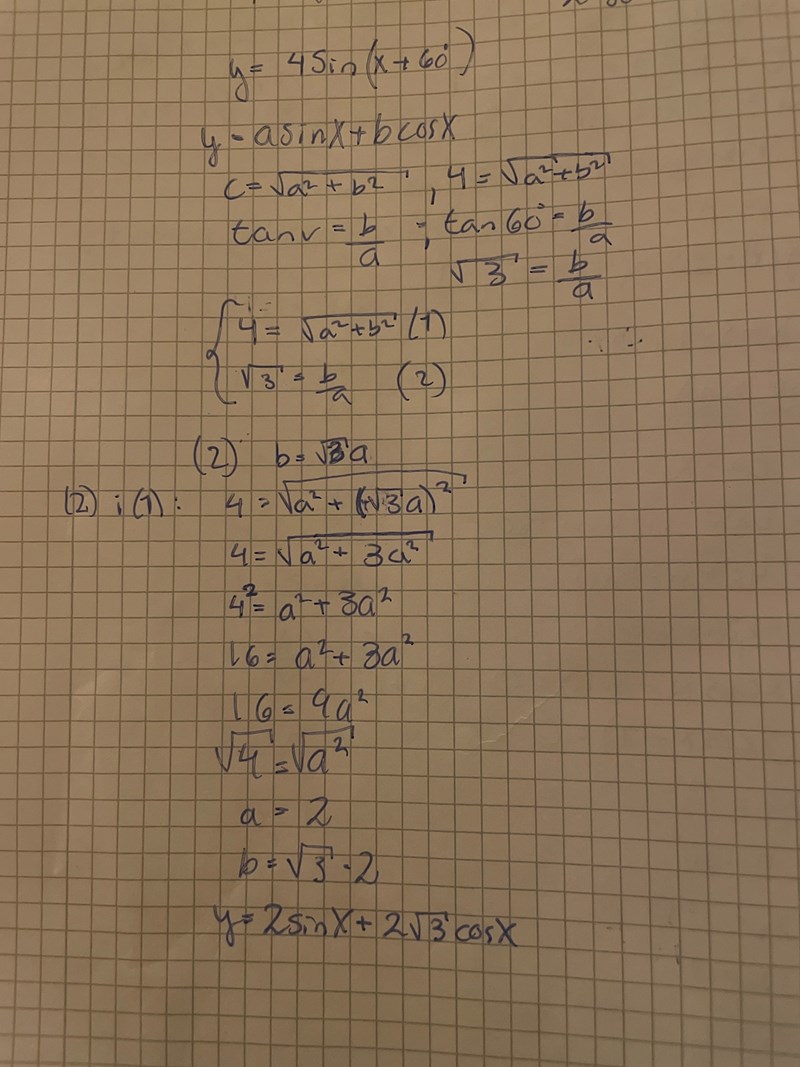 y = 4 Sin(x + 60°)
y = a sin x + b cos x
c = √(a² + b²) , 4 = √(a² + b²)
tan v = b/a ; tan 60° = b/a
√3 = b/a
{ 4 = √(a² + b²) (1)
√3 = b/a (2)
(2) b = √3 a
(2) i (1): 4 = √(a² + (√3a)²)
4 = √(a² + 3a²)
4² = a² + 3a²
16 = a² + 3a²
16 = 4a²
√4 = √a²
a = 2
b = √3 · 2
y = 2 sin x + 2√3 cos x